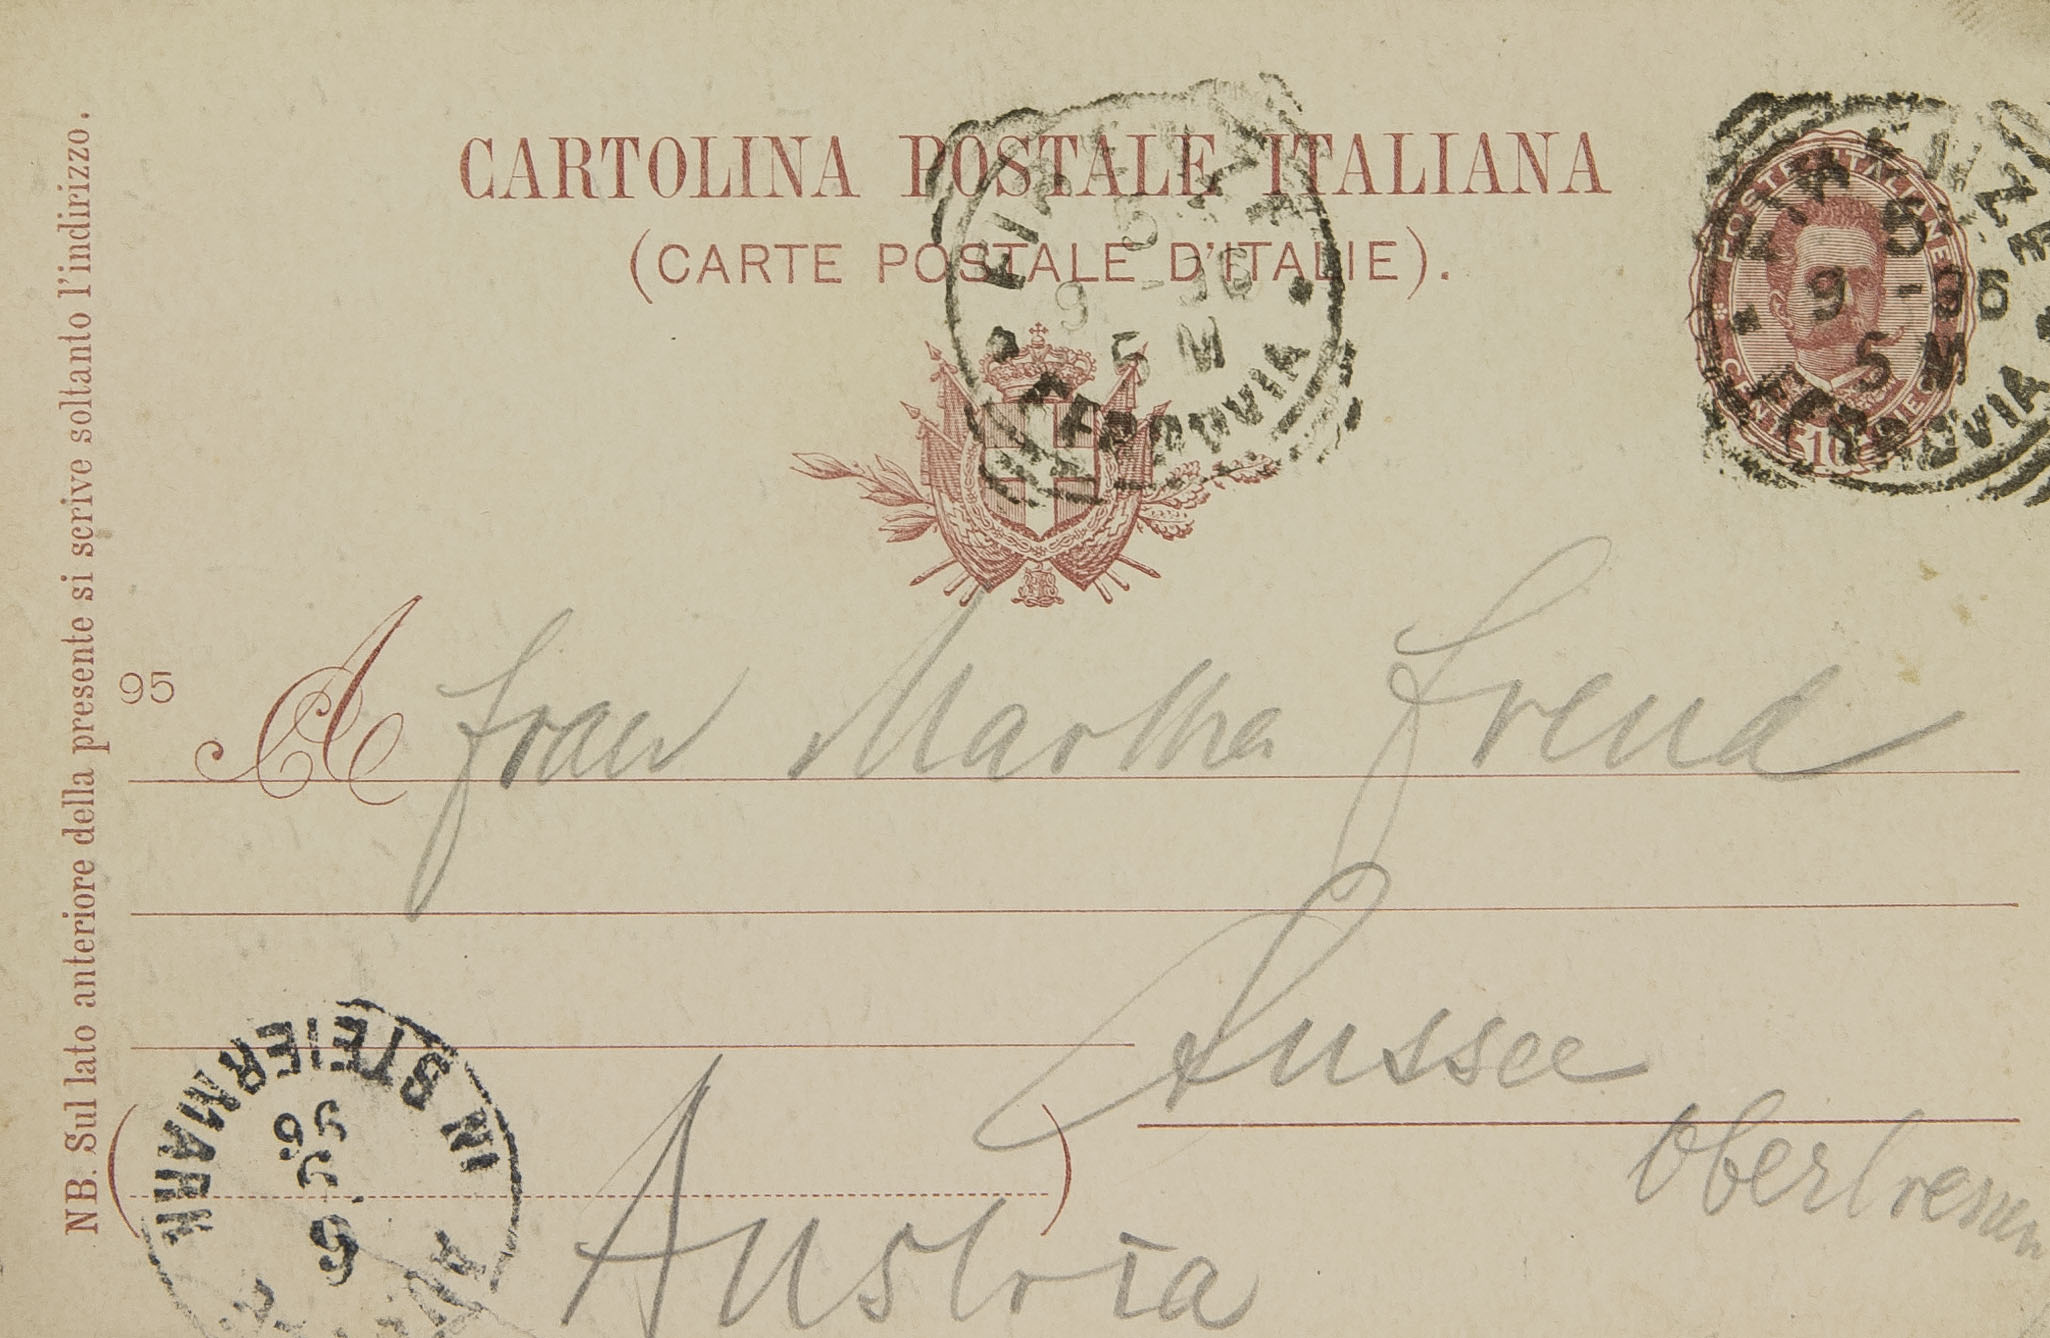 CARTOLINA POSTALE ITALIANA
(CARTE POSTALE D'ITALIE).
FIRENZE
5
9 - 96
5 M
FERROVIA
POSTE ITALIANE
FIRENZE
5
9 - 96
5 M
FERROVIA
10
NB. Sul lato anteriore della presente si scrive soltanto l'indirizzo.
95
A Frau Martha Freud
Aussee
Obertressen
Austria
IN STEIERMARK